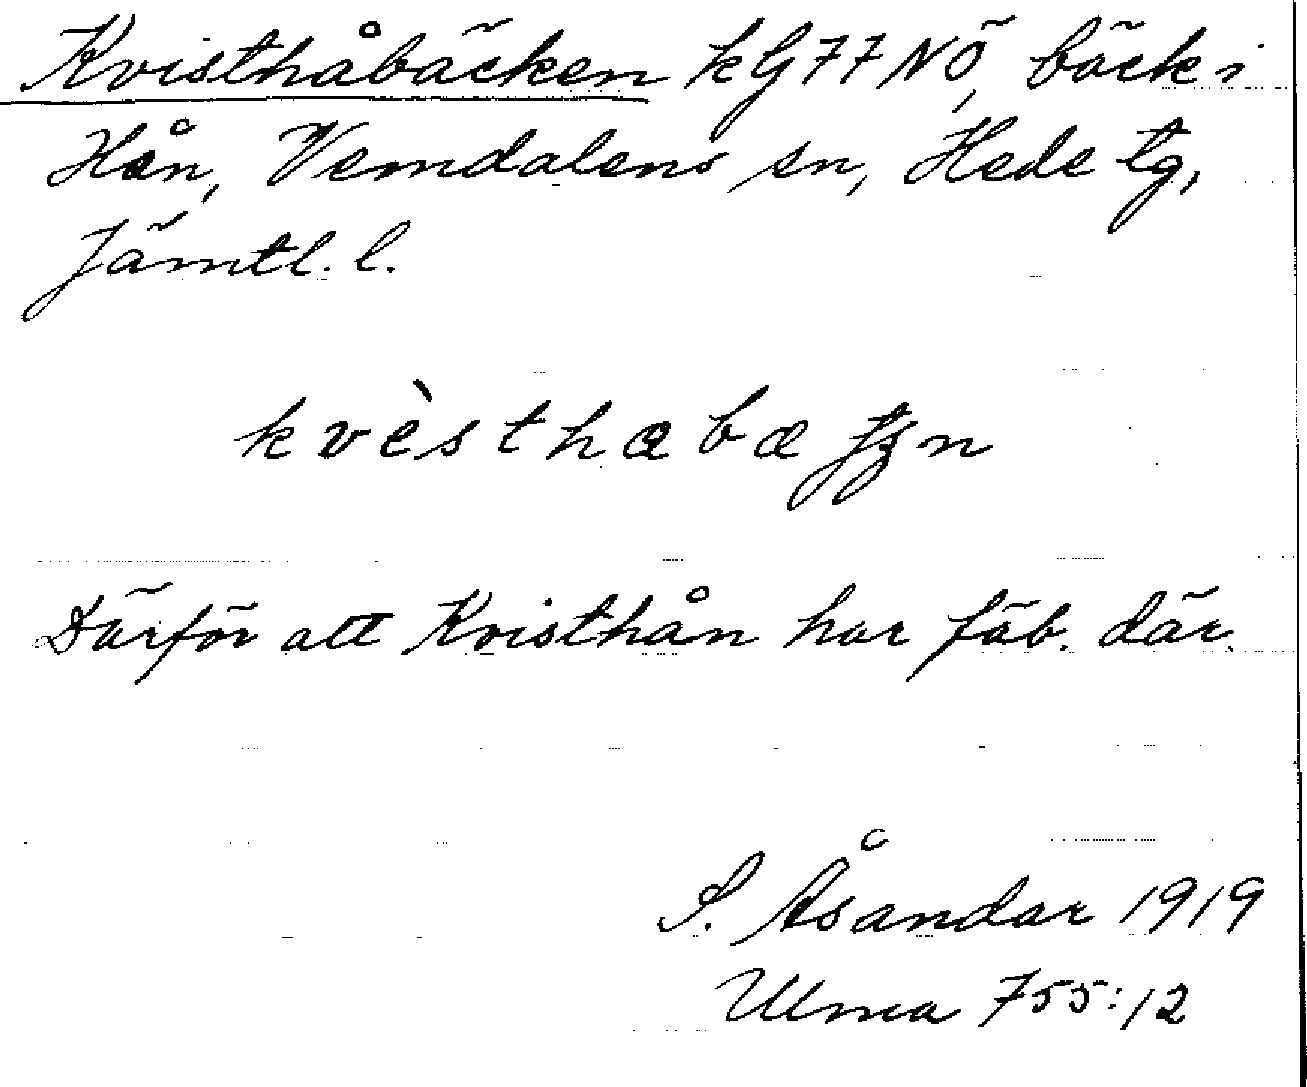 Kvisthåbäcken kG77NÖ, bäck i
Hån, Vemdalens sn, Hede tg,
Jämtl. l.
kvèsthabæʃʒn
Därför att Kvisthån har fäb. där.
S. Åsandar 1919
Ulma 755:12